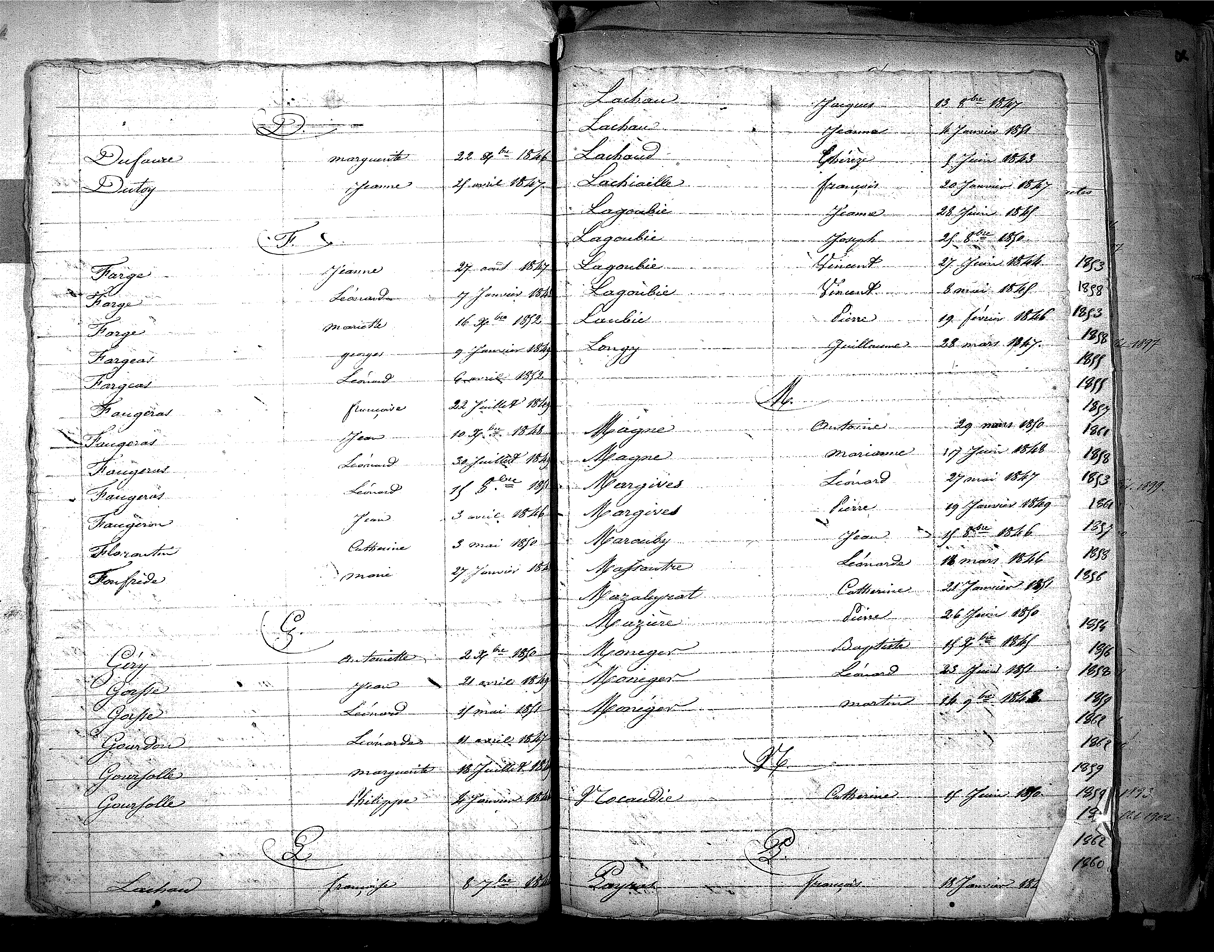 D.
Dufaure marguerite 22 Xbre 1846
Dutoy Jeanne 25 avril 1847
F.
Farge Jeanne 27 août 1847
Farge Léonard 7 Janvier
Farge mariette 16 Xbre 1852
Fargeas georges 9 Janvier
Fargeas Léonard 6 avril 1852
Faugeras françoise 22 Juillet 1849
Faugeras Jean 10 Xbre 1848
Faugeras Léonard 30 Juillet
Faugeras Léonard 15 8bre
Faugeron Jean 3 avril 1846
Florentin Catherine 3 mai 1850
Fonfrède marie 27 Janvier
G.
Géry Antoinette 2 Xbre 1850
Gorsse Jean 21 avril 1849
Gorsse Léonard 15 mai 1851
Gourdon Léonarde 11 avril 1847
Goursolle marguerite 18 Juillet
Goursolle Philippe 2 Janvier
L
Lachau françoise 8 7bre
Lachau Jacques 13 8bre 1847
Lachau Jeanne 4 Janvier 1851
Lachaud Thérèze 5 Juin 1843
Lachiaille françois 20 Janvier 1847
Lagoubie Jeanne 28 Juin 1845
Lagoubie Joseph 25 8bre 1850
Lagoubie Vincent 27 Juin 1844
Lagoubie Vincent 8 mai 1845
Laubie Pierre 19 février 1846
Longy Guillaume 28 mars 1847
M.
Magne Antoine 29 mars 1850
Magne marianne 17 Juin 1848
Margives Léonard 27 mai 1847
Margives Pierre 19 Janvier 1849
Marouby Jean 15 8bre 1846
Massoutre Léonarde 18 mars 1846
Mazaleyrat Catherine 21 Janvier 1851
Mazière Pierre 26 Juin 1850
Moneger Baptiste 15 Xbre 1845
Moneger Léonard 23 Juin 1851
Monéger martin 14 9bre
N.
Nocaudie Catherine 15 Juin 1850
P.
Peyrat françois 18 Janvier
1853
1858
1853
1858
1855
1855
1857
1861
1858
1853
1857
1858
1856
1858
1859
1862
1859
1859
1862
1860
1897
1899